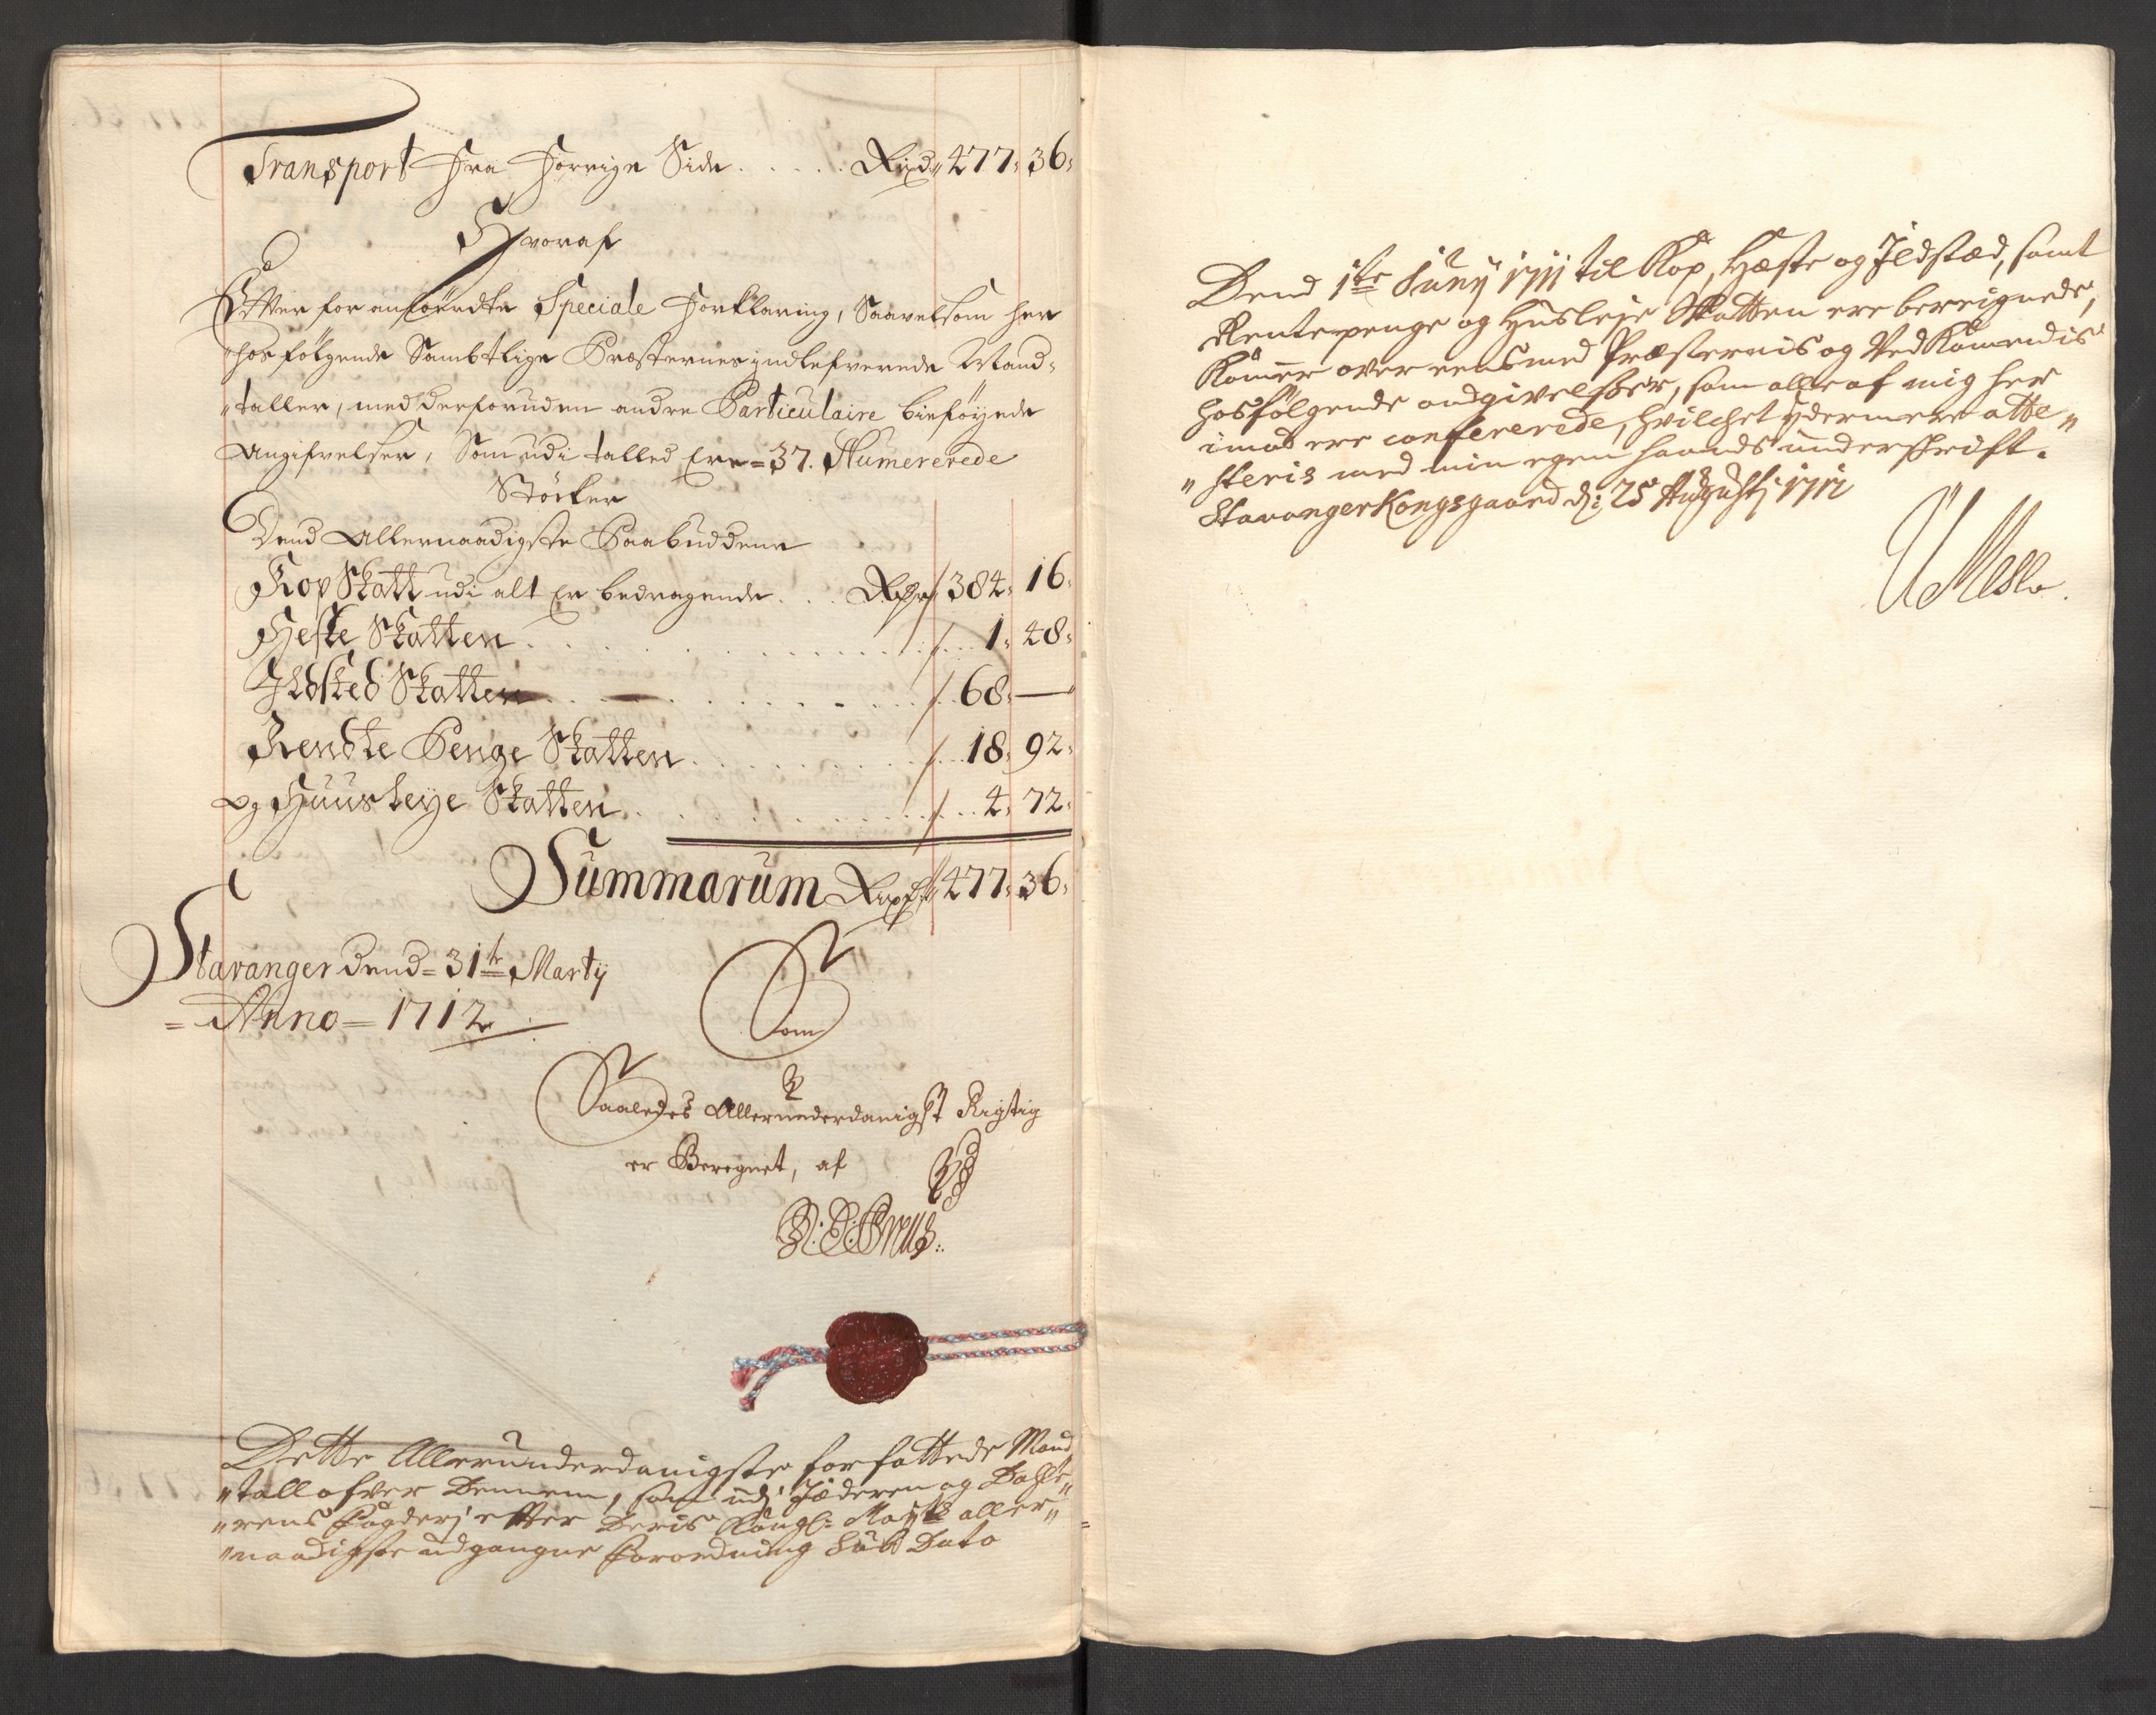 Transport fra forrige Side . . . . . Rixd 477: 36:
Hvoraf
Effter for anførdte Speciale Forklaring, Saavelsom her
"hos følgende Sambtlige Præsternes indlefverede Mand-
"taller, med derforuden andre Particulaire biføyede
Angifvelser, Som udi talled Ere = 37. Numererede
Støcker
Dend Allernaadigste Paabuddene
Kop Skatt udi alt Er bedragende . . . 384: 16:
Heste Skatten . . . 1: 48:
Ildsted Skatten . . . 68: —
Rendte Penge Skatten . . . 18: 92:
og Huusleye Skatten . . . 4: 72:
Summarum 477: 36:
Stavanger dend = 31te Marty
= Anno = 1712
Som
Saaledes Allerunderdanigst Rigtig
er Beregnet, af
Dette Allerunderdanigste forfattede Mand
"tall ofver Dennem, som udj Jæderen og Dahle"
"rens fogderj efter Deris Kongl: Maytts aller"
"naadigste udgangne Forordning Sub Dato
Dend 1te Juny 1711 til Kop, Hæste og Ildstæd, samt
Rentepenge og Husleje Skatten ere bereignede,
Kommer over eens med Præsternis og Vedkommendis
hosfölgende andgivelser, som alle af mig her
imod ere confererede, hvilchet ydermere atte"
"steris med min egen haands underschrift.
Stavanger Kongsgaard d: 25 Augustj 1712